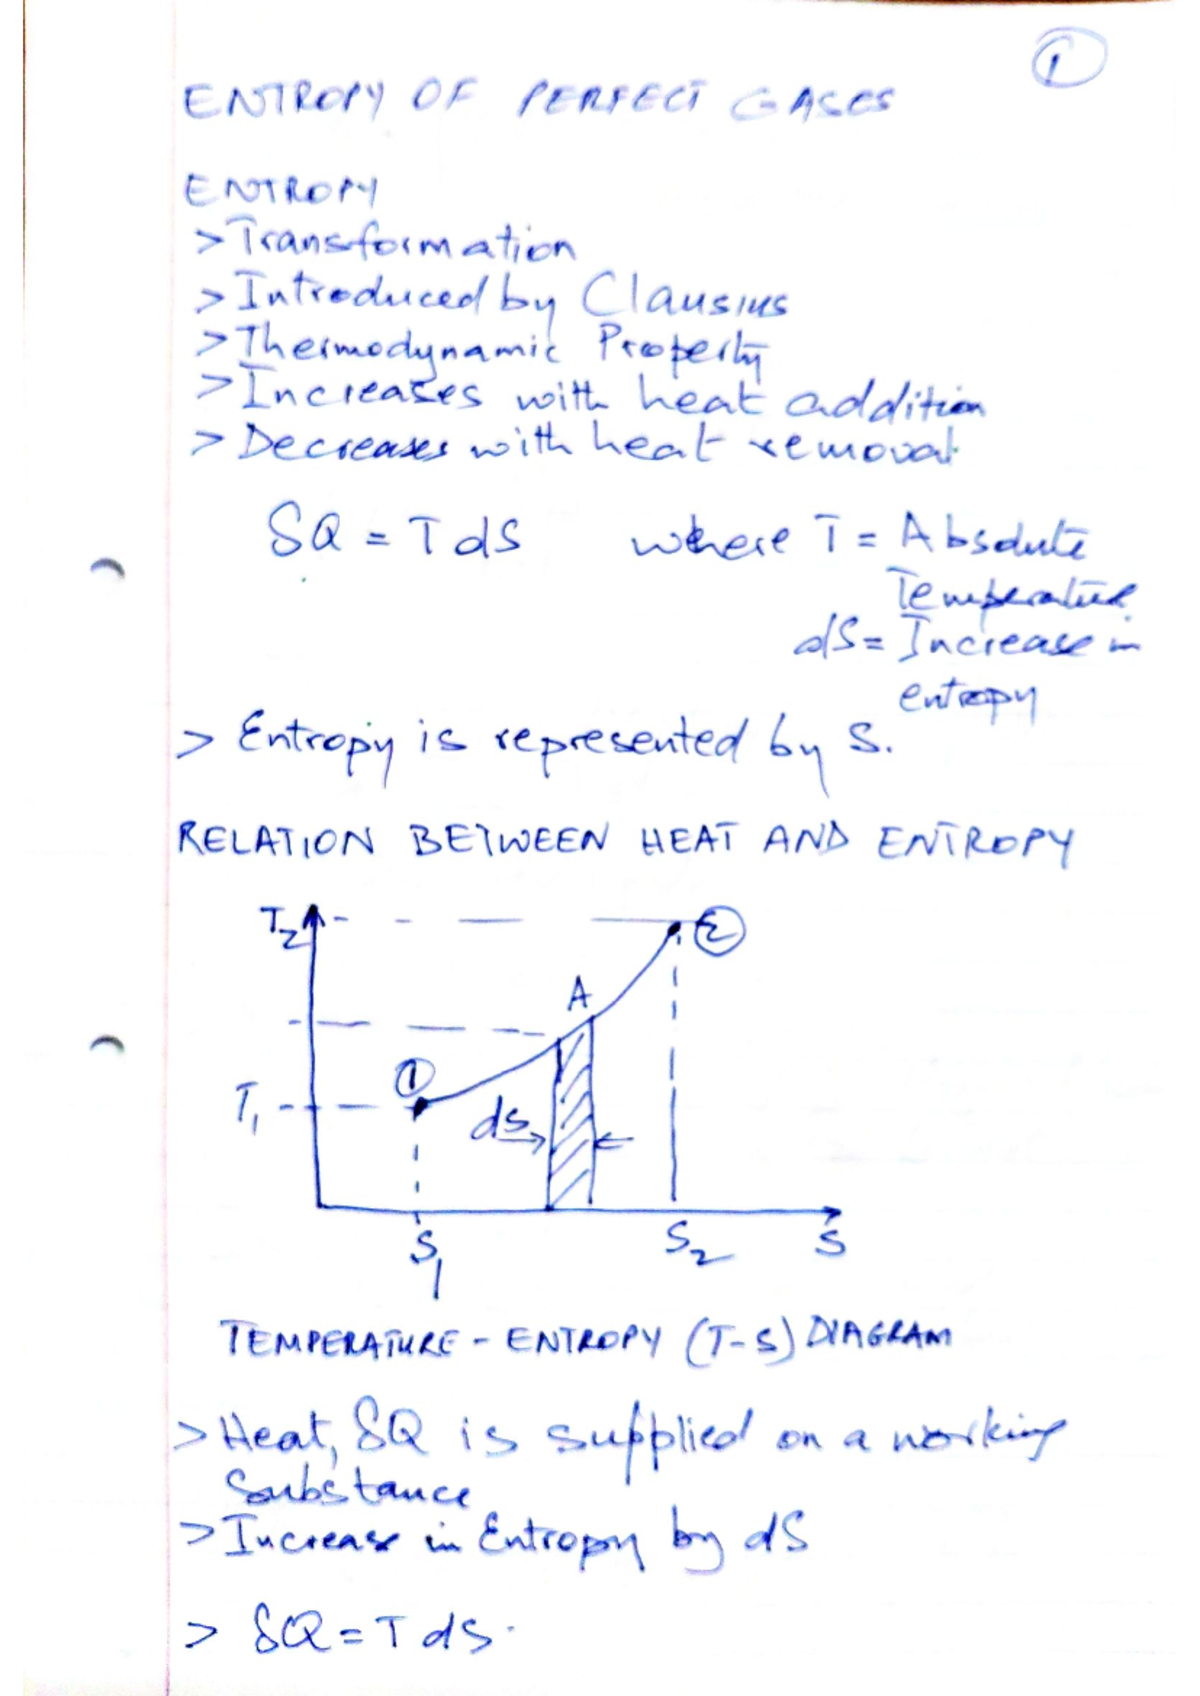 1
ENTROPY OF PERFECT GASES
ENTROPY
> Transformation
> Introduced by Clausius
> Thermodynamic Property
> Increases with heat addition
> Decreases with heat removal
δQ = T dS where T = Absolute
Temperature
dS = Increase in
entropy
> Entropy is represented by S.
RELATION BETWEEN HEAT AND ENTROPY
T2
2
A
1
T1
ds
S1
S2
S
TEMPERATURE - ENTROPY (T-S) DIAGRAM
> Heat, δQ is supplied on a working
Substance
> Increase in Entropy by dS
> δQ = T dS.